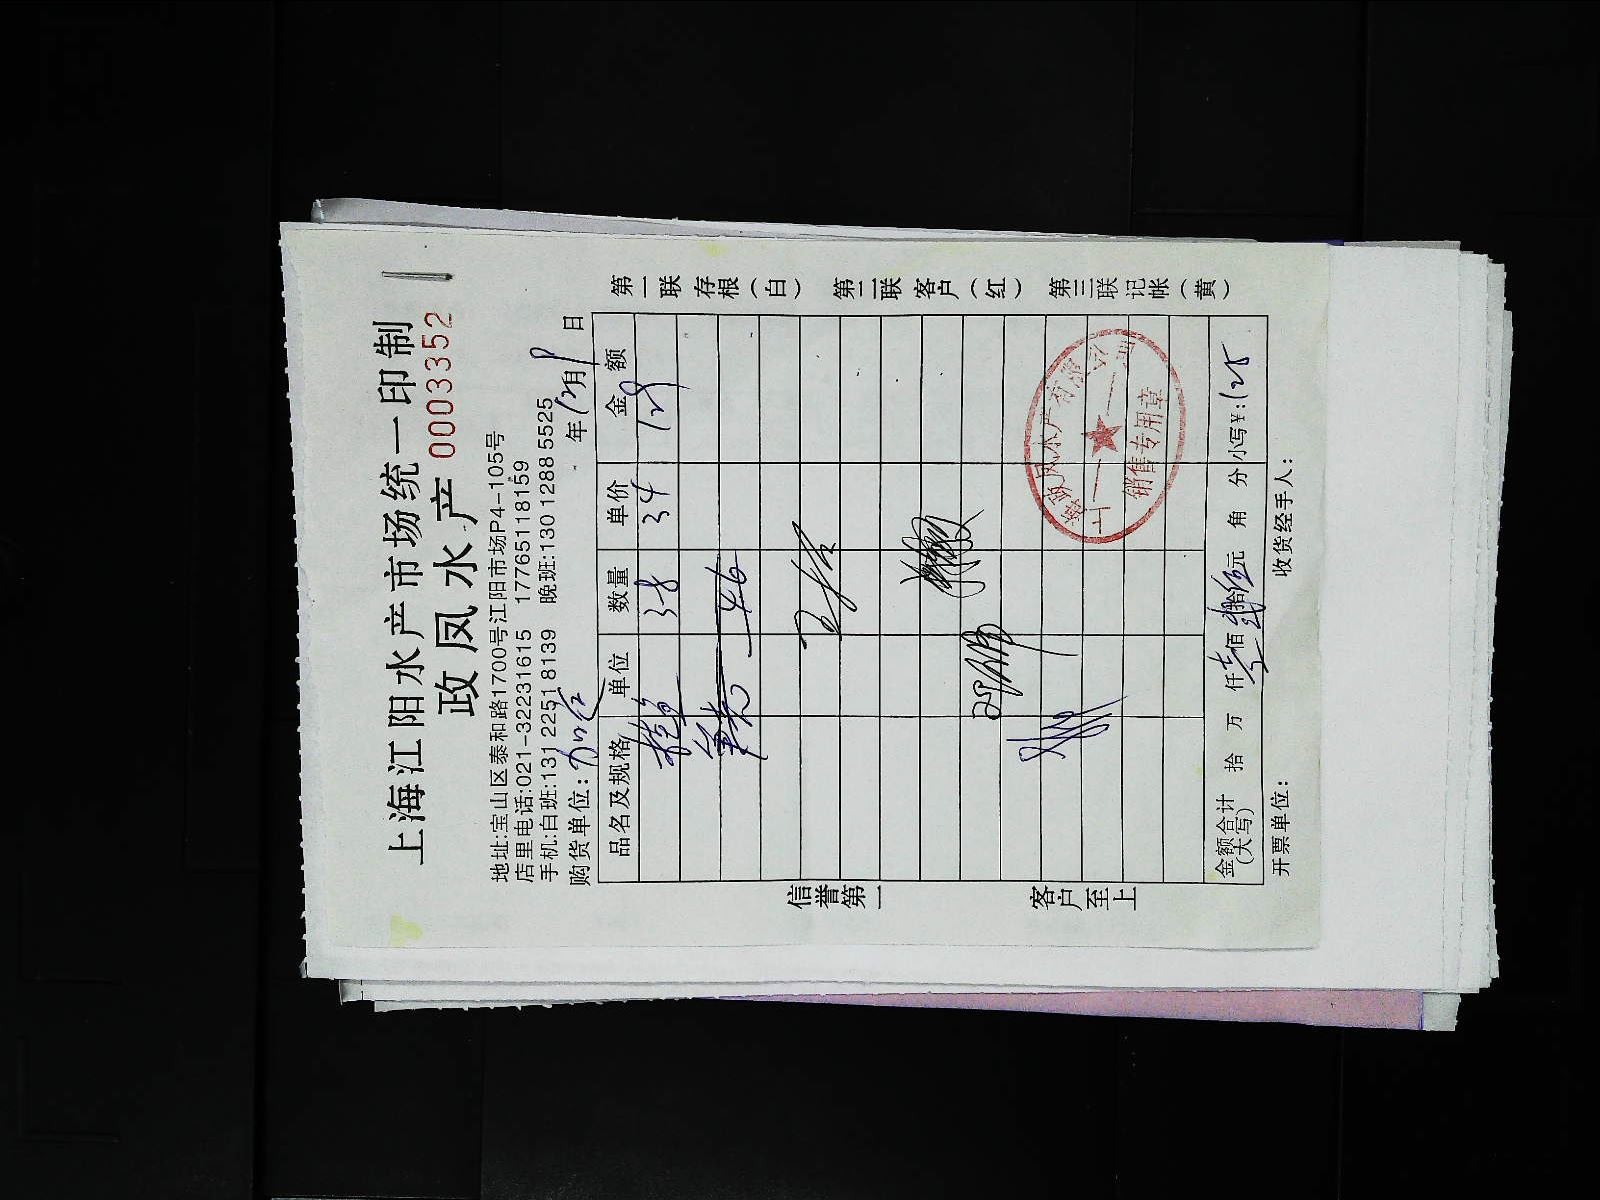 上海江阳水产市场统一印制
政凤水产 0003352
地址:宝山区泰和路1700号江阳市场P4-105号
店里电话:021-32231615 17765118159
手机:白班:131 2251 8139 晚班:130 1288 5525
购货单位: 年12月9日
品名及规格 单位 数量 单价 金额
38 34 129
46
金额合计(大写) 拾 万 仟壹佰 拾 元 角 分 小写¥:128
开票单位: 收货经手人:
第一联 存根(白) 第二联 客户(红) 第三联 记帐(黄)
信誉第一
客户至上
销售专用章